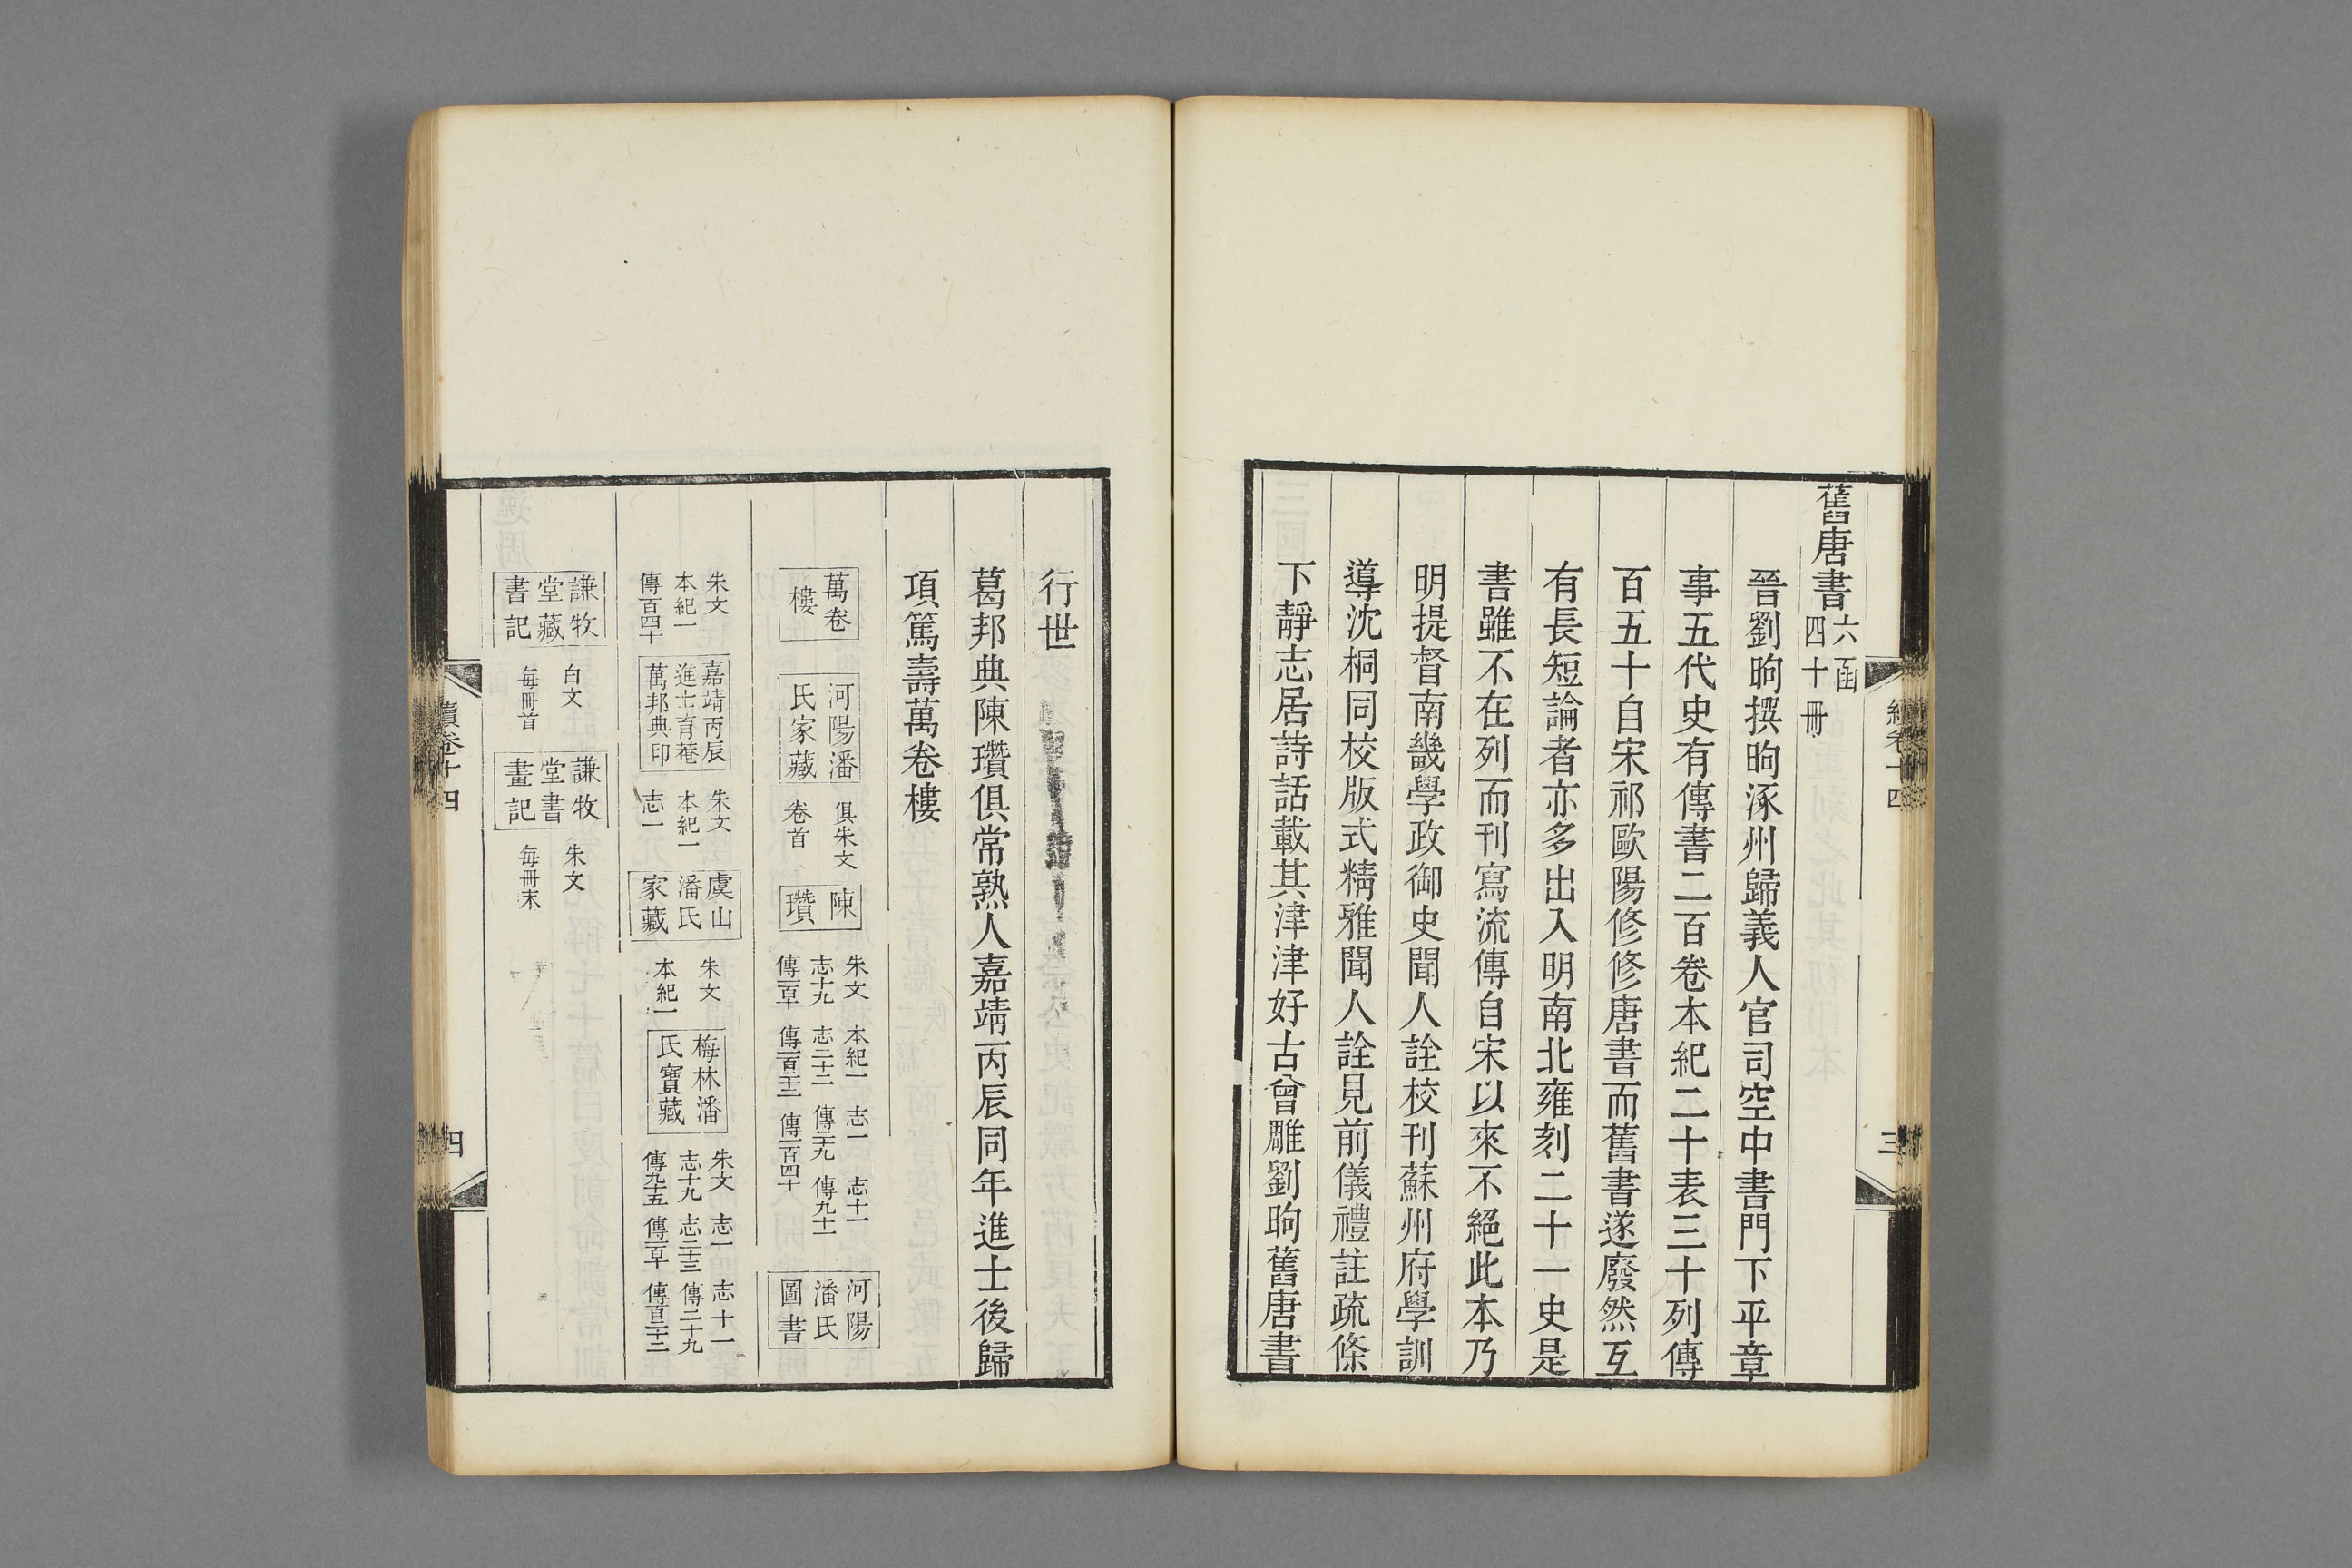 舊唐書六函四十冊
晉劉昫撰昫涿州歸義人官司空中書門下平章
事五代史有傳書二百卷本紀二十表三十列傳
百五十自宋祁歐陽修修唐書而舊書遂廢然互
有長短論者亦多出入明南北雍刻二十一史是
書雖不在列而刊寫流傳自宋以來不絕此本乃
明提督南畿學政御史聞人詮校刊蘇州府學訓
導沈桐同校版式精雅聞人詮見前儀禮註疏條
下靜志居詩話載其津津好古曾雕劉昫舊唐書
行世
葛邦典陳瓚俱常熟人嘉靖丙辰同年進士後歸
項篤壽萬卷樓
萬卷
樓
河陽潘
氏家藏
俱朱文
卷首
陳
瓚
朱文 本紀一 志一 志十一
志十九 志二十二 傳二十九 傳九十一
傳一百四十
河陽
潘氏
圖書
朱文
本紀一
傳百四十
嘉靖丙辰
進士育菴
葛邦典印
朱文
本紀一
志一
虞山
潘氏
家藏
朱文
本紀一
梅林潘
氏寶藏
朱文 志一 志十一
志十九 志二十三 傳二十九
傳九十五
謙牧
堂藏
書記
白文
每冊首
謙牧
堂書
畫記
朱文
每冊末
續卷十四
三
續卷十四
四